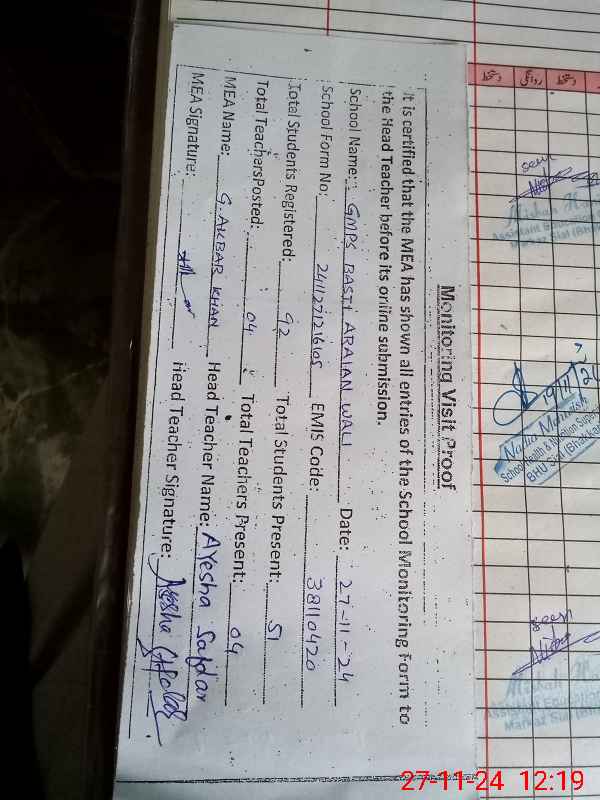 Monitoring Visit Proof
It is certified that the MEA has shown all entries of the School Monitoring Form to
the Head Teacher before its online submission.
School Name: GMPS BASTI ARAIAN WALI Date: 27-11-24
School Form No: EMIS Code: 38110420
Total Students Registered: 92 Total Students Present: 51
Total TeachersPosted: 04 Total Teachers Present: 04
MEA Name: G. AKBAR KHAN Head Teacher Name: AYesha Safdar
MEA Signature: Head Teacher Signature: Ayesha Safdar
دستخط روانگی دستخط
seen
Assistant Education
Markaz Sial (Bhak
19/11
Nadia
School Health & Nutrition Super
BHU Sial (Bhakkar
seen
Assistant Education
Markaz Sial (Bha
27-11-24 12:19